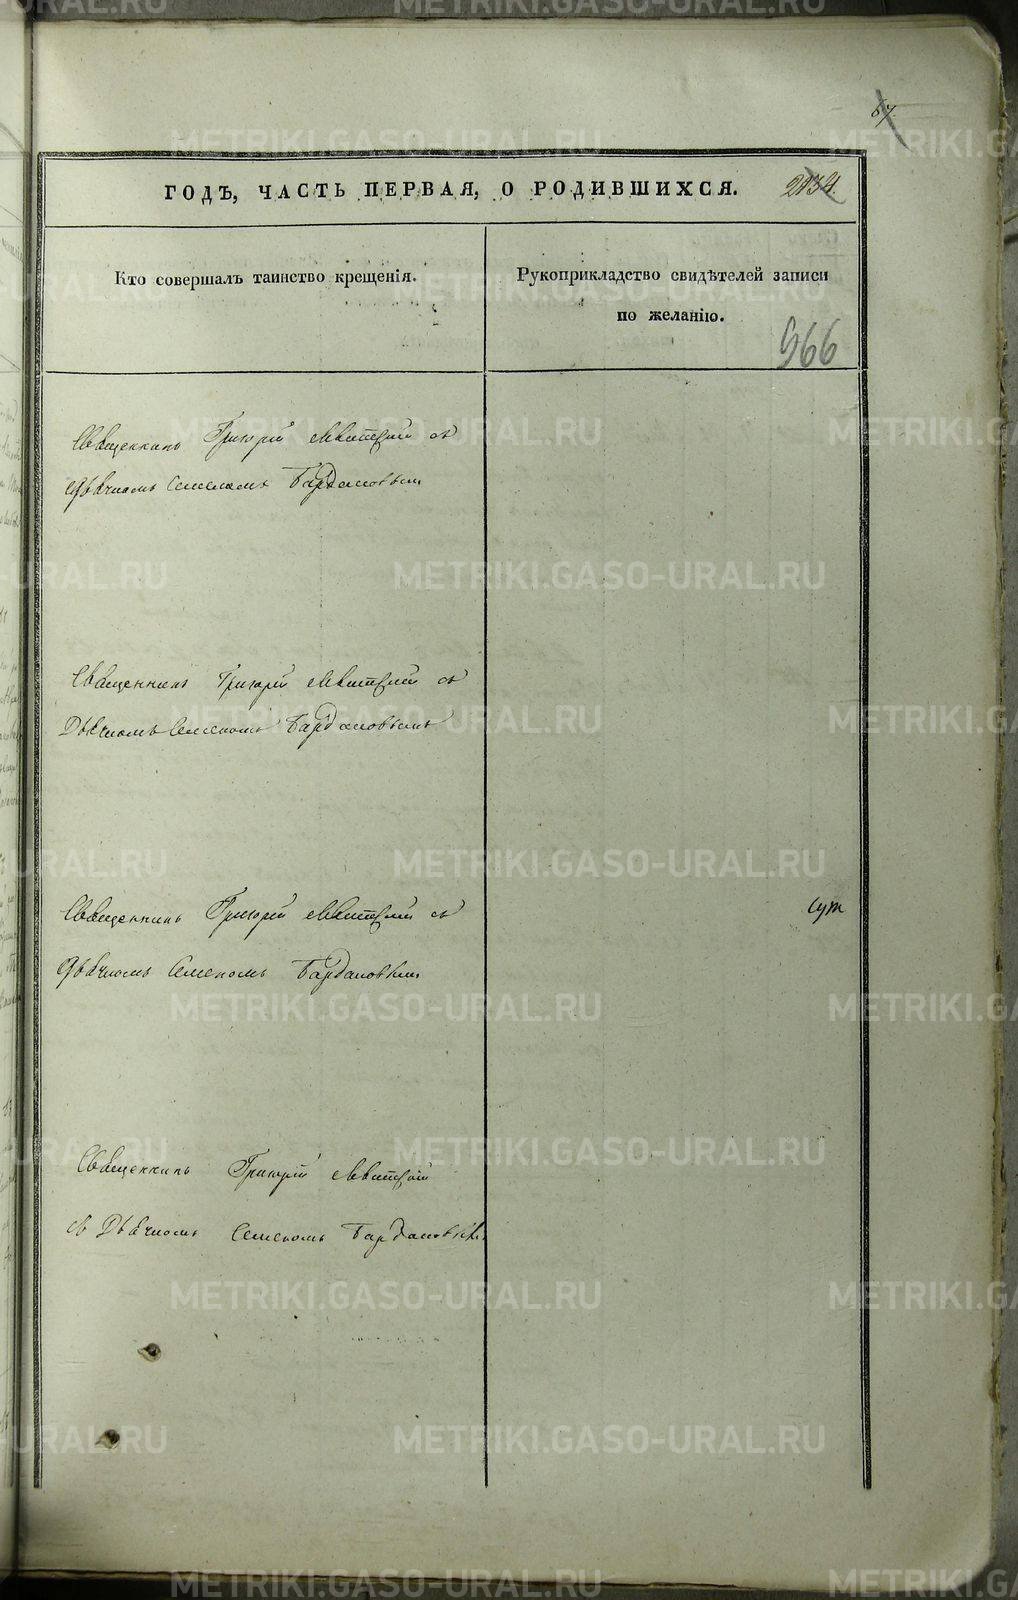 67.
ГОДЪ, ЧАСТЬ ПЕРВАЯ, О РОДИВШИХСЯ.
2134.
Кто совершалъ таинство крещенія.
Рукоприкладство свидѣтелей записи
по желанію.
966
Священникъ Григорій Левитскій съ
Дьячкомъ Семеномъ
Священникъ Григорій Левитскій съ
Дьячкомъ Семеномъ
Священникъ Григорій Левитскій съ
Дьячкомъ Семеномъ
Священникъ Григорій Левитскій
съ Дьячкомъ Семеномъ
METRIKI.GASO-URAL.RU